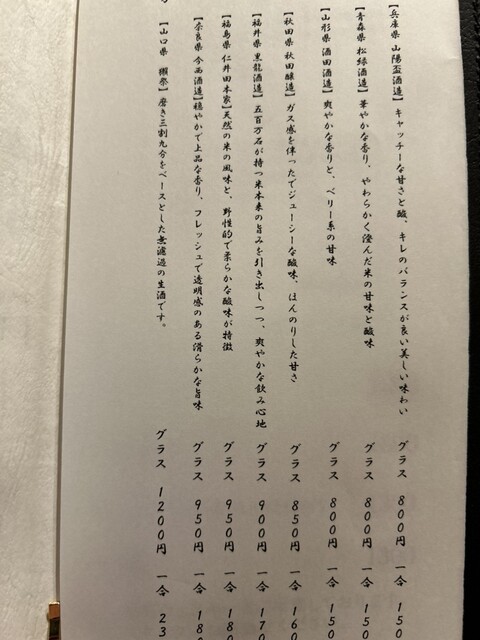 【兵庫県 山陽盃酒造】キャッチーな甘さと酸、キレのバランスが良い美しい味わい グラス 800円 一合 150
【青森県 松緑酒造】華やかな香り、やわらかく澄んだ米の甘味と酸味 グラス 800円 一合 150
【山形県 酒田酒造】爽やかな香りと、ベリー系の甘味 グラス 800円 一合 150
【秋田県 秋田醸造】ガス感を伴ったでジューシーな酸味、ほんのりした甘さ グラス 850円 一合 160
【福井県 黒龍酒造】五百万石が持つ米本来の旨みを引き出しつつ、爽やかな飲み心地 グラス 900円 一合 170
【福島県 仁井田本家】天然の米の風味と、野性的で柔らかな酸味が特徴 グラス 950円 一合 180
【奈良県 今西酒造】穏やかで上品な香り、フレッシュで透明感のある滑らかな旨味 グラス 950円 一合 180
【山口県 獺祭】磨き三割九分をベースとした無濾過の生酒です。 グラス 1200円 一合 23